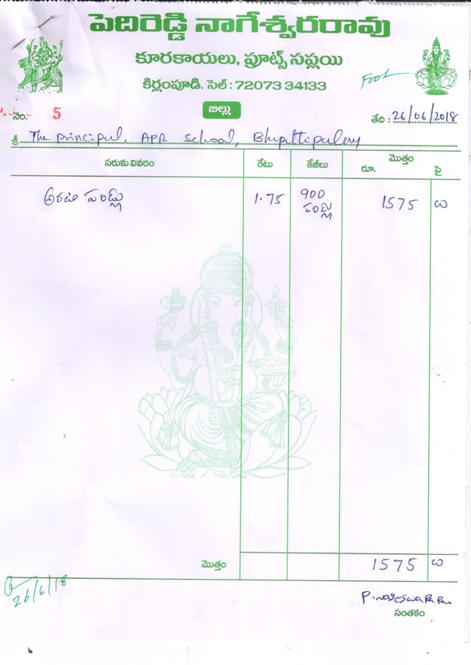 పెదిరెడ్డి నాగేశ్వరరావు
కూరకాయలు, ఫ్రూట్స్ సప్లయి
కిర్లంపూడి. సెల్ : 72073 34133
Food
నెం. 5
బిల్లు
తేది : 26/06/2018
శ్రీ The principal, APR School,
సరుకు వివరం రేటు కేజీలు మొత్తం
రూ. పై
అరటి పండ్లు 1.75 900 పండ్లు 1575
మొత్తం 1575
26/6/18
సంతకం